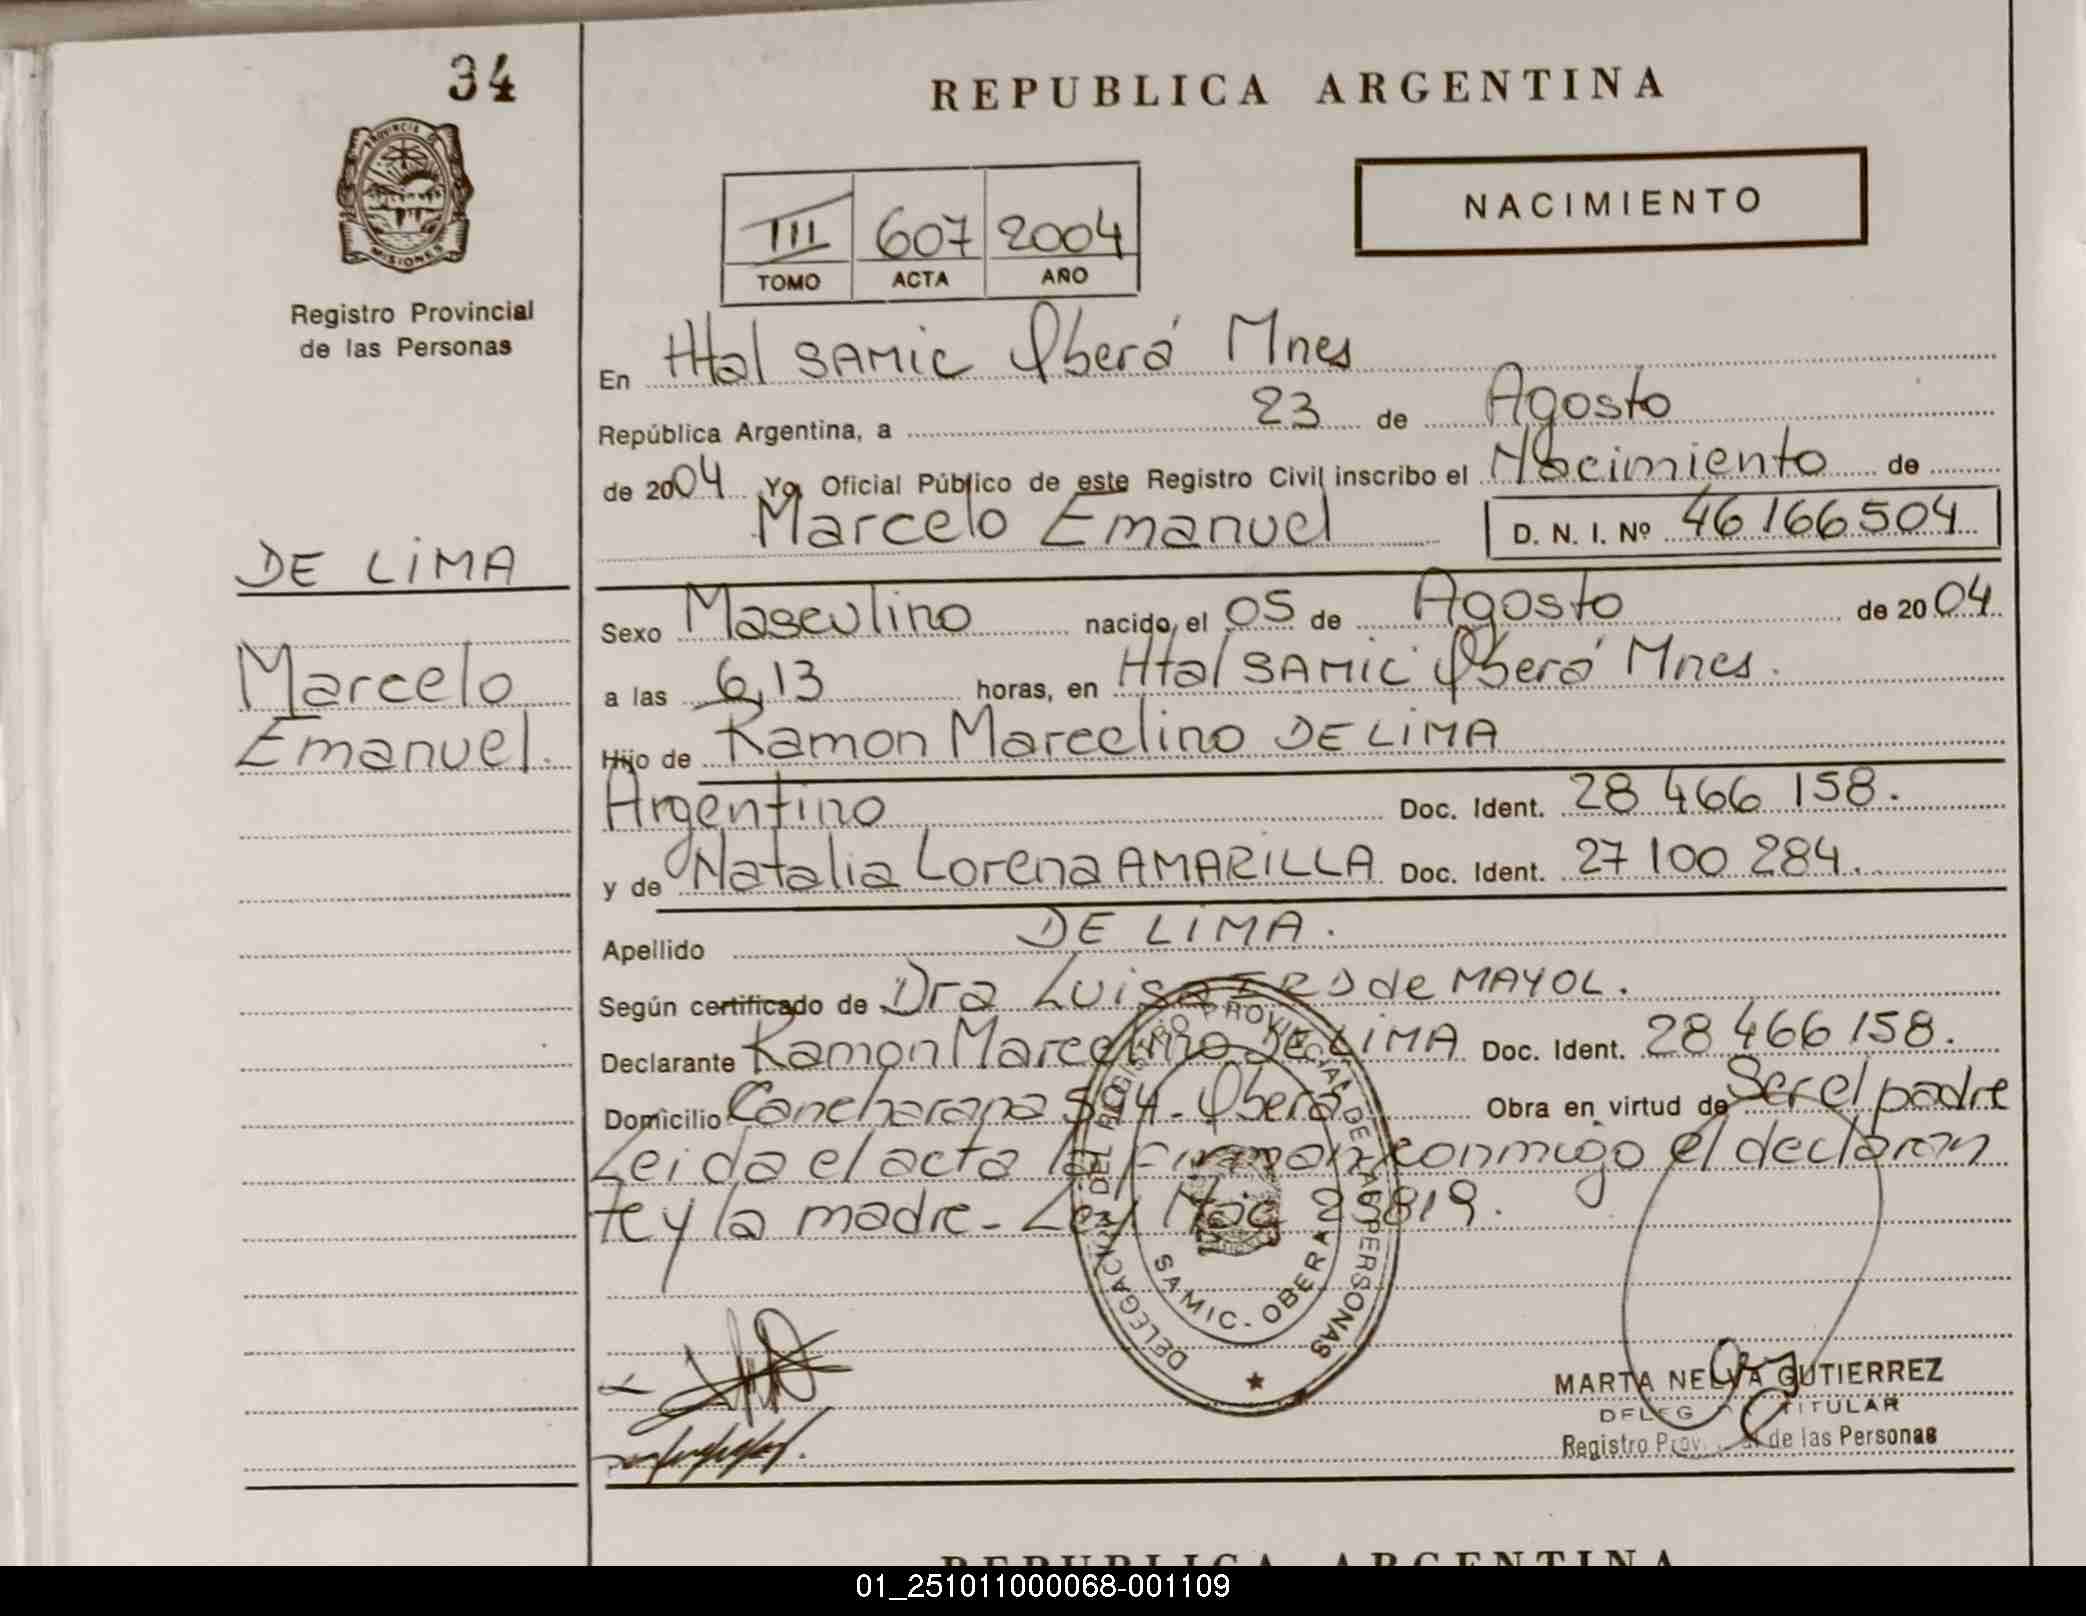 34
REPUBLICA ARGENTINA
PROVINCIA DE
MISIONES
NACIMIENTO
III 607 2004
TOMO ACTA AÑO
Registro Provincial
de las Personas
En Htal SAMIC Oberá Mnes
República Argentina, a 23 de Agosto
de 2004 Yo, Oficial Público de este Registro Civil inscribo el Nacimiento de
Marcelo Emanuel D. N. I. Nº 46166504
DE LIMA
Sexo Masculino nacido el 05 de Agosto de 2004
Marcelo
a las 6,13 horas, en Htal SAMIC Oberá Mnes.
Emanuel.
Hijo de Ramon Marcelino DE LIMA
Argentino Doc. Ident. 28 466 158.
y de Natalia Lorena AMARILLA Doc. Ident. 27 100 284.
Apellido DE LIMA.
Según certificado de Dra Luisa de MAYOL.
Declarante Ramon Marcelino DE LIMA Doc. Ident. 28 466 158.
Domicilio Oberá Obra en virtud de Ser el padre
Leida el acta la firman conmigo el declaran
te y la madre. Ley 25819.
DELEGACION DEL REGISTRO PROVINCIAL DE LAS PERSONAS
SAMIC - OBERA
MARTA NELVA GUTIERREZ
TITULAR
Registro de las Personas
REPUBLICA ARGENTINA
01_251011000068-001109